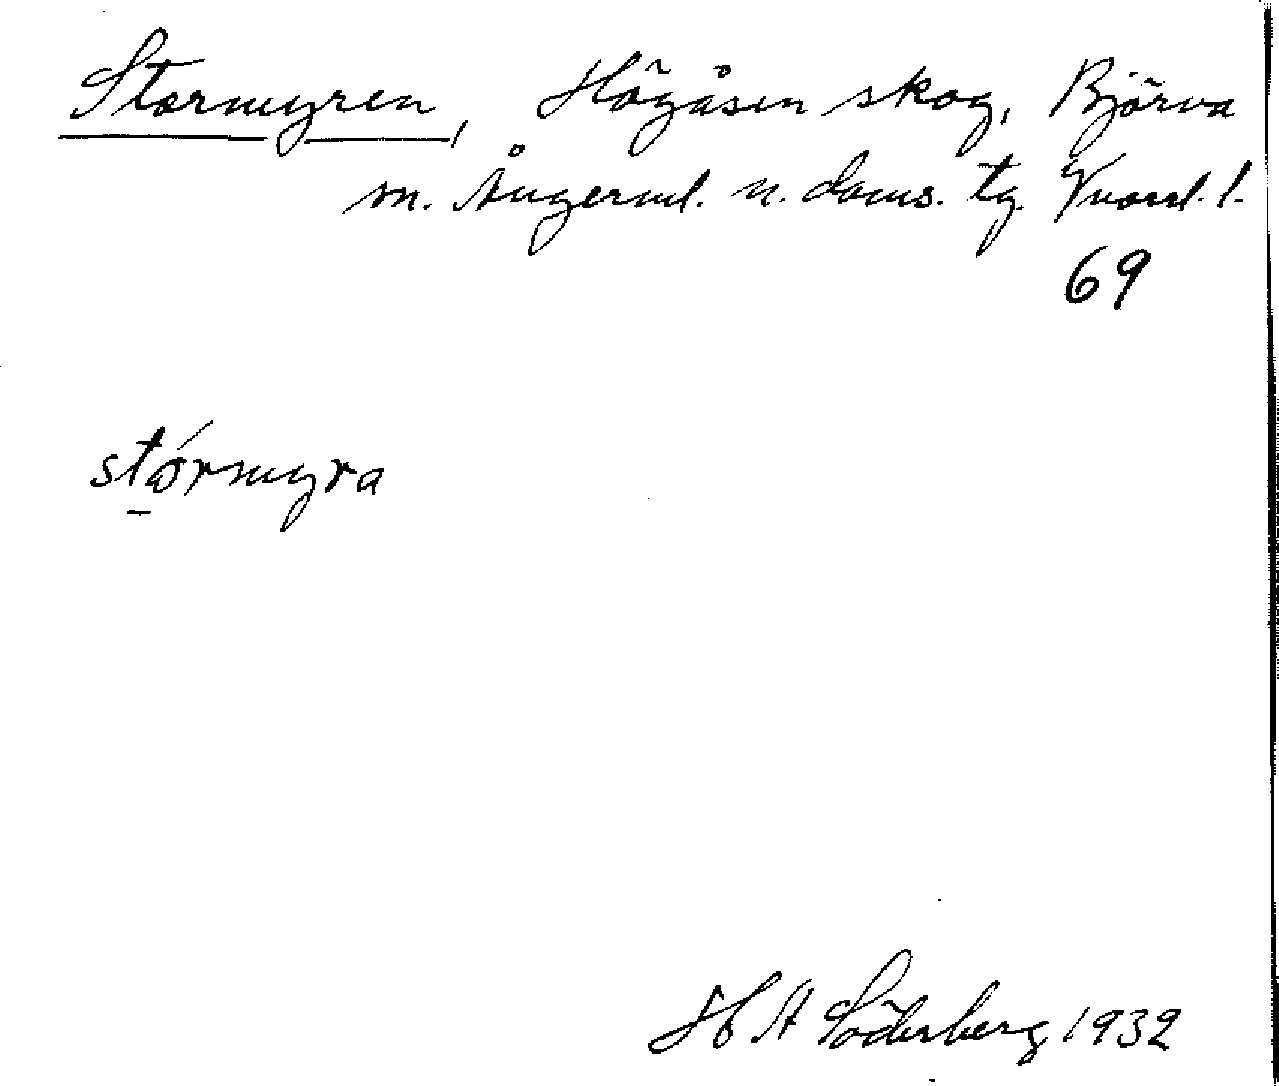 Stormyren, Högåsen skog, Björna
m. Ångerml. n. doms. tg Kvarnl. l.
69
stórmyra
H A Söderberg 1932